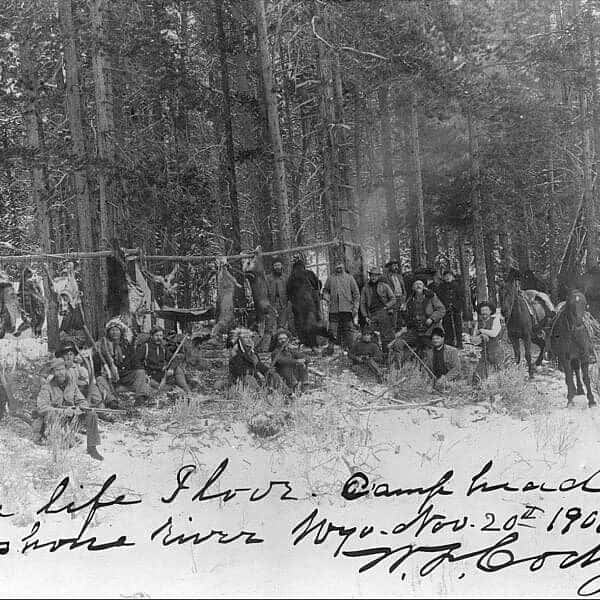 life Floor. Camp head
river Wyo. Nov. 20th 190
W.F. Cody